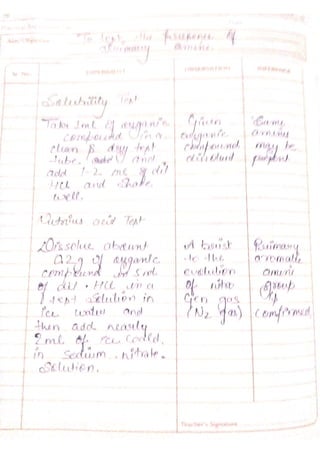 To test the presence of
primary amine.
EXPERIMENT
OBSERVATION
INFERENCE
Solubility Test
Take 1ml of organic
compound in a
clean & dry test
tube. add and
add 1-2 ml of dil
HCl and shake
well.
Given
organic
compound
dissolved
Same
amine
may be
present.
Nitrous acid Test
Dissolve about
0.2 g of organic
compound in 5 ml
of dil. HCl in a
test solution in
ice water and
then add nearly
2ml of ice cold
in sodium nitrate
Solution.
to the
evolution
of nitro
gen gas
(N2 gas)
Primary
aromatic
amine
group
is
confirmed
Teacher's Signature